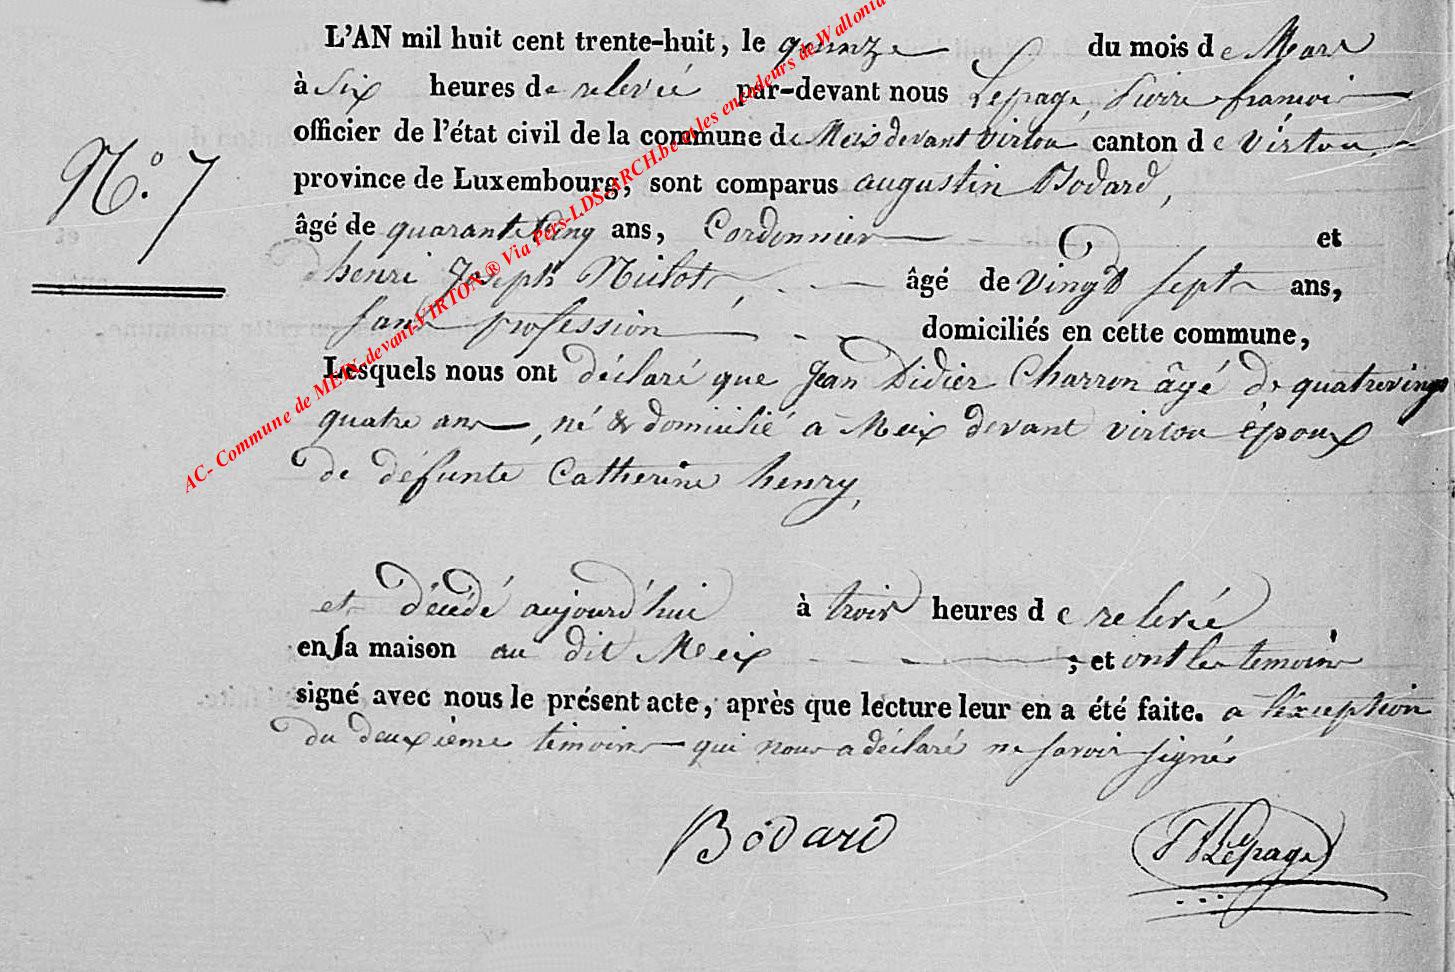 L'AN mil huit cent trente-huit, le quinze du mois de Mars
à six heures de relevé par-devant nous Lepage, Pierre françois
officier de l'état civil de la commune de Meix devant virton, canton de virton,
N.° 7
province de Luxembourg, sont comparus augustin Bodard,
âgé de quarante cinq ans, Cordonnier et
henri Joseph âgé de vingt sept ans,
sans profession domiciliés en cette commune,
Lesquels nous ont déclaré que Jean Didier Charron âgé de quatrevingt
quatre ans, né & domicilié à Meix devant virton époux
de défunte Catherine henry,
et décédé aujourd'hui à trois heures de relevée
en sa maison au dit Meix ; et ont les temoins
signé avec nous le présent acte, après que lecture leur en a été faite. a l'exception
du deuxième temoins qui nous a déclaré ne savoir signé
Bodard
Lepage
AC- Commune de MEIX-devant-VIRTON ® Via Pers-LDS-ARCH.be et les encodeurs de Wallonia